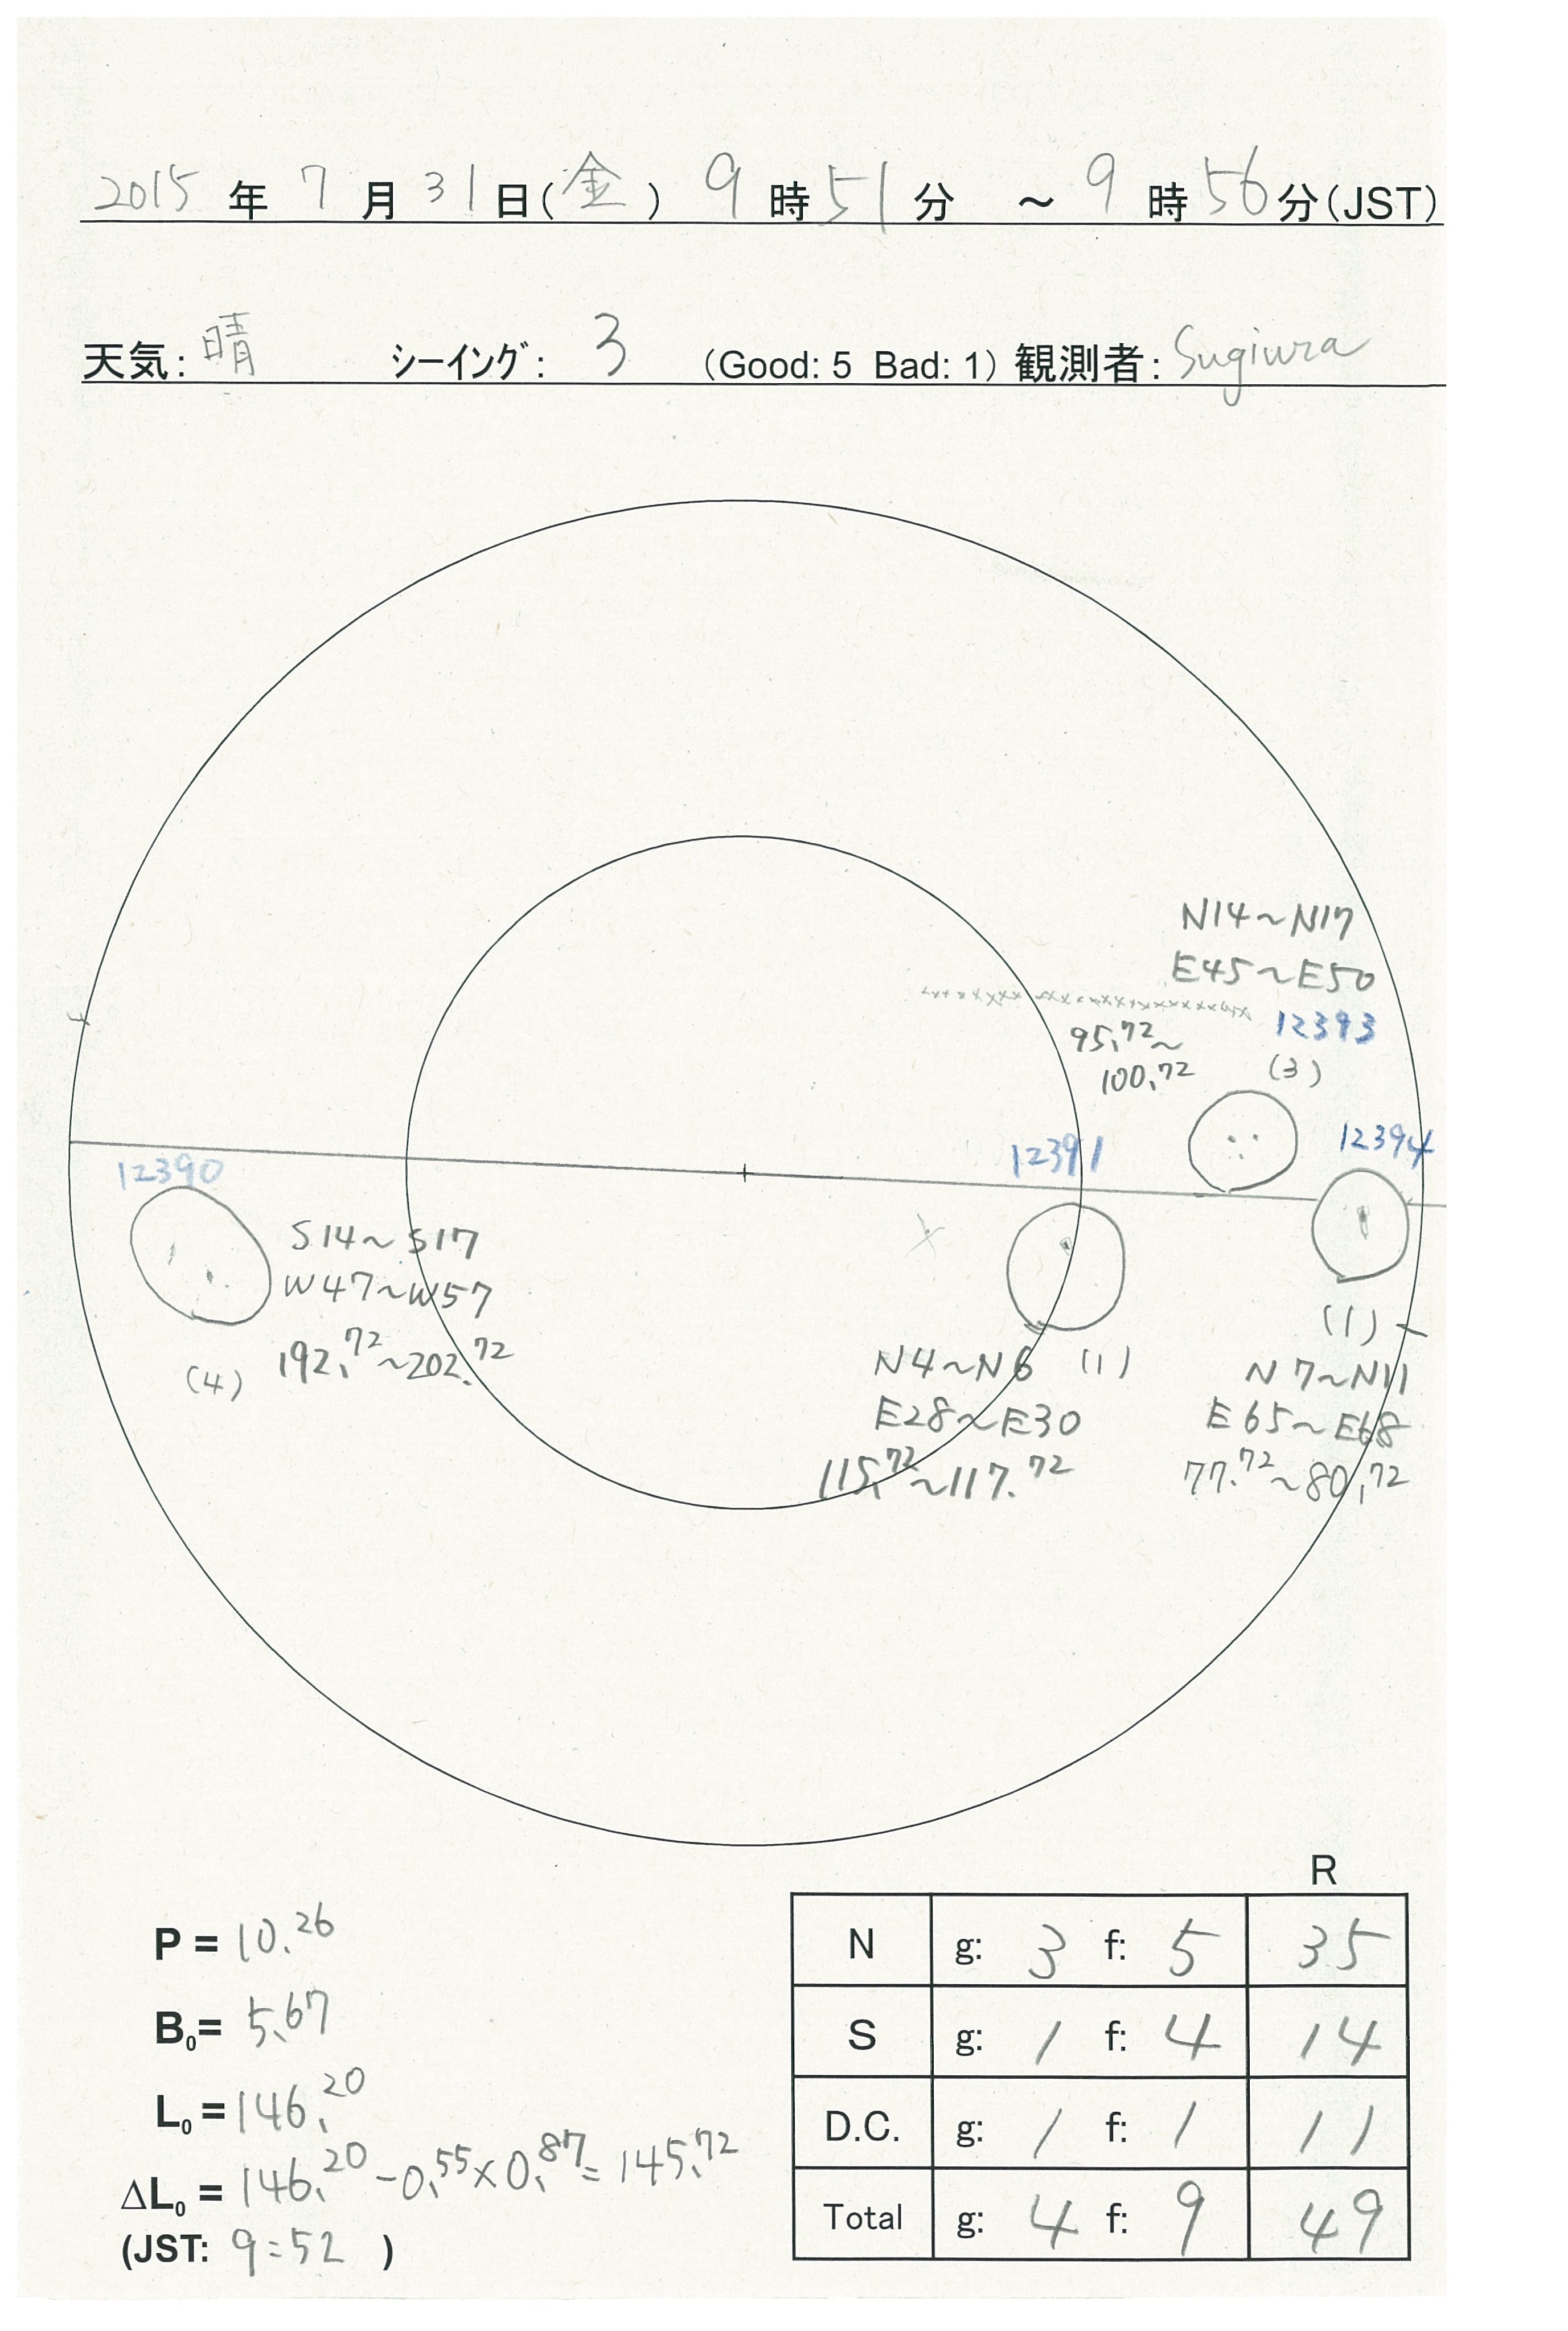 2015 年 7 月 31 日(金) 9 時 51 分 ~ 9 時 56 分(JST)
天気: 晴 シーイング: 3 (Good: 5 Bad: 1) 観測者: Sugiura
N14~N17
E45~E50
12393
95.72~
100.72
(3)
12391
12394
12390
S14~S17
W47~W57
192.72~202.72
(4)
(1)
N4~N6 (1)
E28~E30
115.72~117.72
N7~N11
E65~E68
77.72~80.72
R
P = 10.26
N g: 3 f: 5 35
B0= 5.67
S g: 1 f: 4 14
L0 = 146.20
D.C. g: 1 f: 1 11
ΔL0 = 146.20-0.55×0.87=145.72
Total g: 4 f: 9 49
(JST: 9:52 )